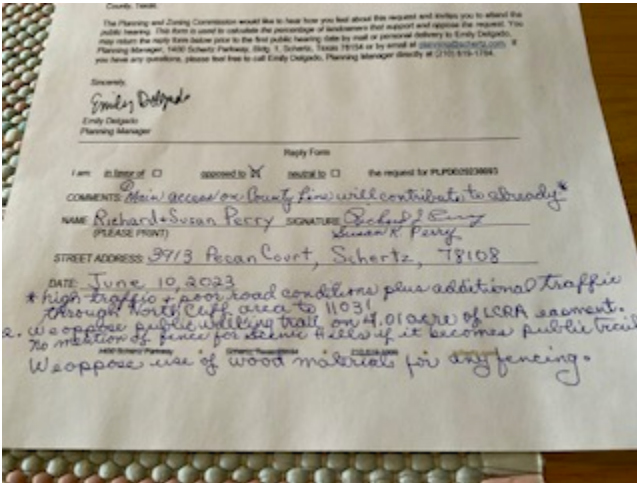 County, Texas.
The Planning and Zoning Commission would like to hear how you feel about this request and invites you to attend the
public hearing. This form is used to calculate the percentage of landowners that support and oppose the request. You
may return the reply form below prior to the first public hearing date by mail or personal delivery to Emily Delgado,
Planning Manager, 1400 Schertz Parkway, Bldg. 1, Schertz, Texas 78154 or by email at planning@schertz.com. If
you have any questions, please feel free to call Emily Delgado, Planning Manager directly at (210) 619-1784.
Sincerely,
Emily Delgado
Emily Delgado
Planning Manager
Reply Form
I am: in favor of ☐ opposed to ☒ neutral to ☐ the request for
COMMENTS: ① Main access on County Line will contribute to already*
NAME: Richard + Susan Perry SIGNATURE Richard J Perry
(PLEASE PRINT) Susan R. Perry
STREET ADDRESS: 3913 Pecan Court, Schertz, 78108
DATE: June 10, 2023
* high traffic + poor road conditions plus additional traffic
through North Cliff area to 1103!
2. We oppose public walking trail on 4.01 acre of LCRA easment.
No mention of fence for Scenic Hills if it becomes public trail
1400 Schertz Parkway Schertz, Texas 78154
We oppose use of wood materials for any fencing.